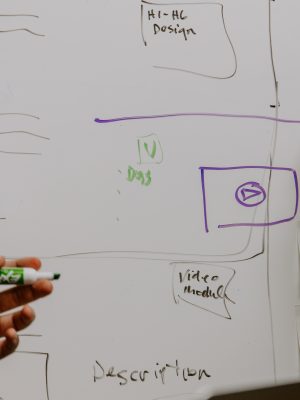 HI-HG
Design
V
Video
Modul
Description